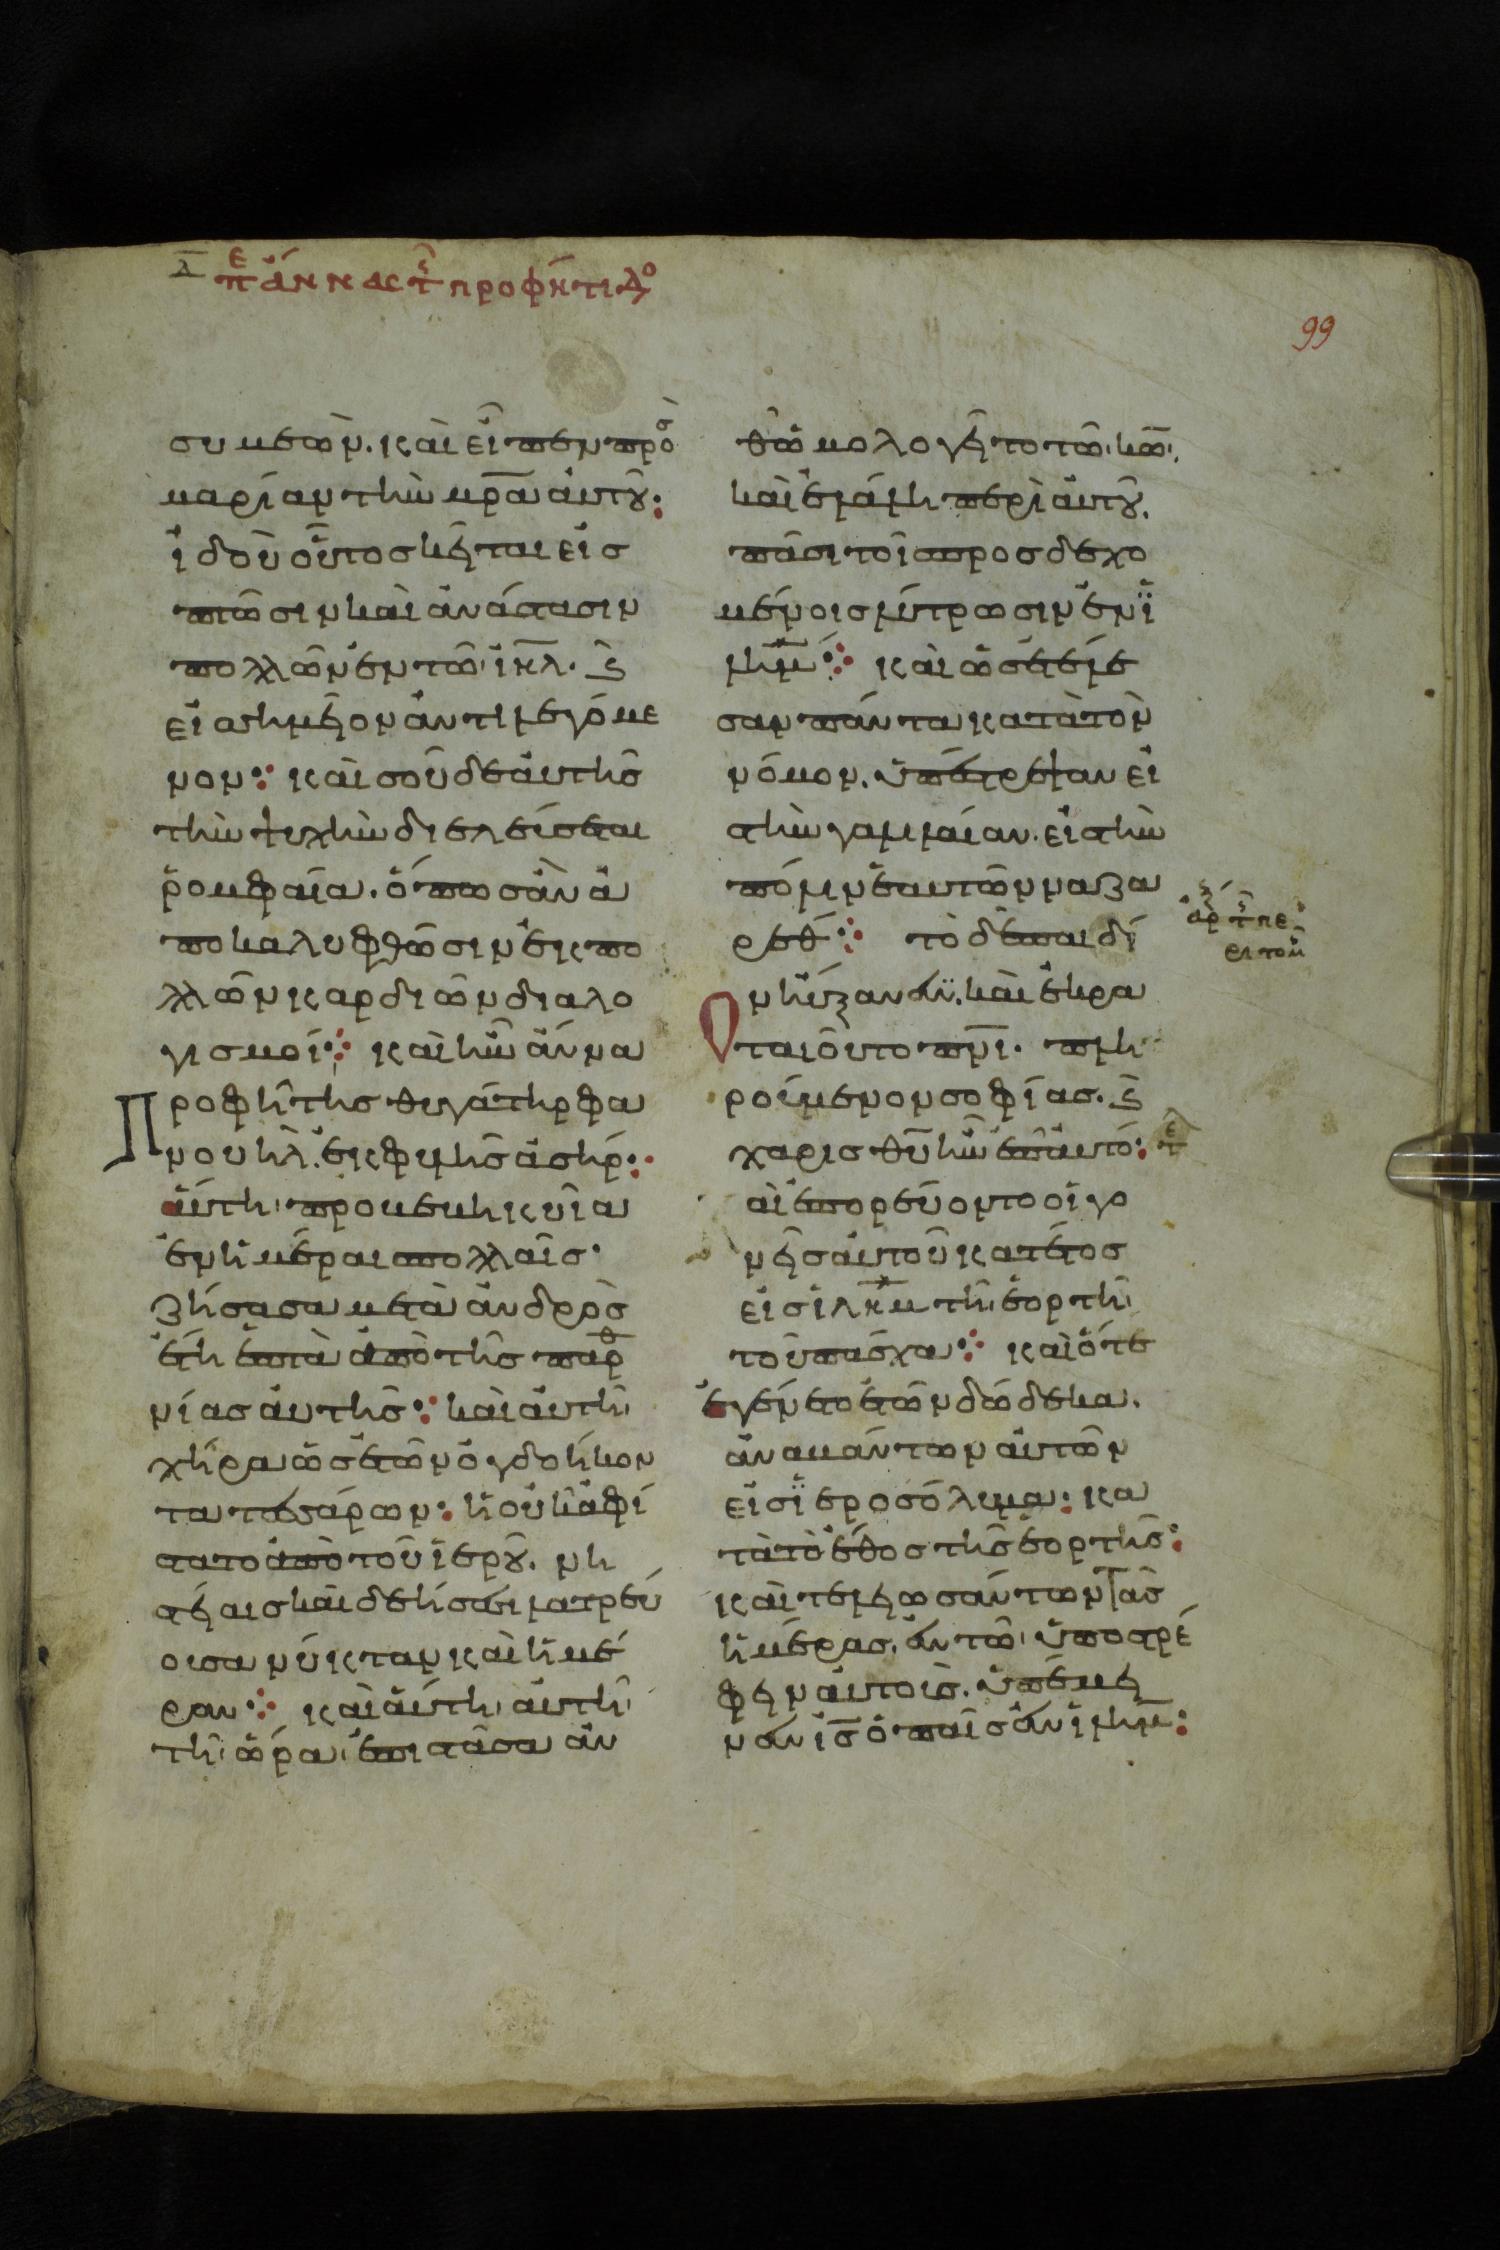 π̅ε ἄννας τ̑ς προφήτιδο
99
συμεὼν. καὶ εἶπεν προς
μαρίαμ τὴν μρ̅α αὐτοῦ:
ἰδοὺ οὗτος κεῖται εἰσ
πτῶσιν καὶ ἀνάστασιν
πολλῶν ἐν τῶ ἰηλ. ϛ̀
εἰσημεῖον ἀντιλεγόμε
νον: καὶ σοῦ δὲ αὐτῆσ
τὴν ψυχὴν διελεύσεται
ῥομφαῖα. ὅπωσ ἂν ἀ
ποκαλυφθῶσιν ἐκ πο
λλῶν καρδιῶν διαλο
γισμοί: καὶ ἦν ἄννα
Προφῆτησ θυγάτηρ φα
νουήλ. ἐκ φυλῆσ ἀσήρ:
αὕτη προβεβηκυῖα
ἐν ἡμέραισ πολλαῖσ
ζήσασα μετὰ ἀνδρὸσ
ἔτη ἑπτὰ ἀπὸ τῆσ παρθ
νίασ αὐτῆσ: καὶ αὐτὴ
χήρα ὡσ ἐτῶν ὀγδοήκον
τα τεσσάρων: ἣ οὐκ ἀφί
στατο ἀπὸ τοῦ ἱεροῦ. νη
στείαισ καὶ δεήσεσι λατρεύ
ουσα νύκταν καὶ ἡμέ
ραν: καὶ αὕτη αὐτῆ
τῆ ὥρα ἐπιστᾶσα ἀν
θωμολογεῖτο τῶ κω̅.
καὶ ἐλάλη περὶ αὐτοῦ.
πᾶσι τοῖσ προσδεχο
μένοισ λύτρωσιν ἐν ϊ
λημ̅: καὶ ὡσ ἐτέλε
σαν πάντα κατὰ τὸν
νόμον. ὑπέστρεψαν εἰ
σ τὴν γαλιλαίαν. εἰσ τὴν
πόλιν ἑαυτῶν ναζα
ρέθ: τὸ δὲ παιδί
ον ηὔξανεν. καὶ ἐκρα
ταιοῦτο πνι̅. πλη
ρούμενον σοφίασ. ϛ̀
χαρισ θυ̅ ἦν ἐπ αὐτό: τε
αὶ ἐπορεύοντο οἱ γο
νεῖσ αὐτοῦ κατ ἔτοσ
εἰσ ἱλημ τῆ ἑορτῆ
τοῦ πάσχα: καὶ ὅτε
ἐγένετο ἐτῶν δώδεκα.
ἀναβάντων αὐτῶν
εἰσ ϊεροσόλυμα: κα
τὰ τὸ ἔθοσ τῆσ ἑορτῆσ:
καὶ τελειωσάντων τὰσ
ἡμέρασ. ἐν τῶ ὑποστρέ
φειν αὐτοὺσ. ὑπέμει
νεν ἰσ̅ ὁ παῖσ ἐν ἱλημ̅: